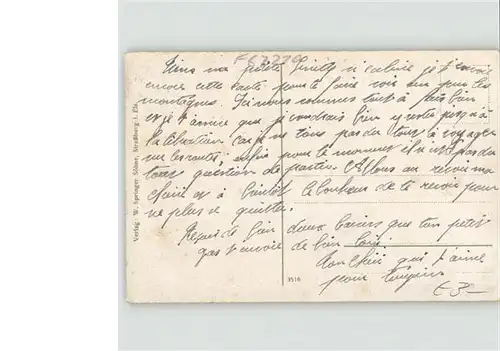 F67270
ma petite je t'envoie
encore cette carte pour te faire voir un peu les
montagnes. Ici nous sommes tout à fait bien
et je t'assure que je voudrais bien y rester jusqu'à
la libération car je ne tiens pas du tout à voyager
enfin pour le moment il n'est pas du
tout question de partir. Allons au revoir ma
chérie et à bientôt le bonheur de te revoir pour
ne plus se quitter.
Reçois de bien doux baisers que ton petit
gas t'envoie de bien loin.
Ton chéri qui t'aime
pour toujours
Verlag: W. Springer Söhne, Straßburg i. Els.
3516
€3-